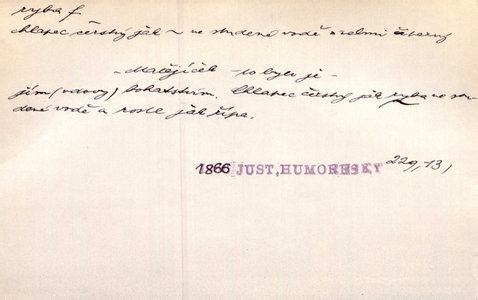 ryba f
chlapec čerstvý jak ~ ve studené vodě = velmi
– Matějíček – to bylo je-
jím (vdovy) bohatstvím. Chlapec čerstvý jak ryba ve stu-
dené vodě a rostl jak řípa.
1866 JUST, HUMORESKY 229, 13,